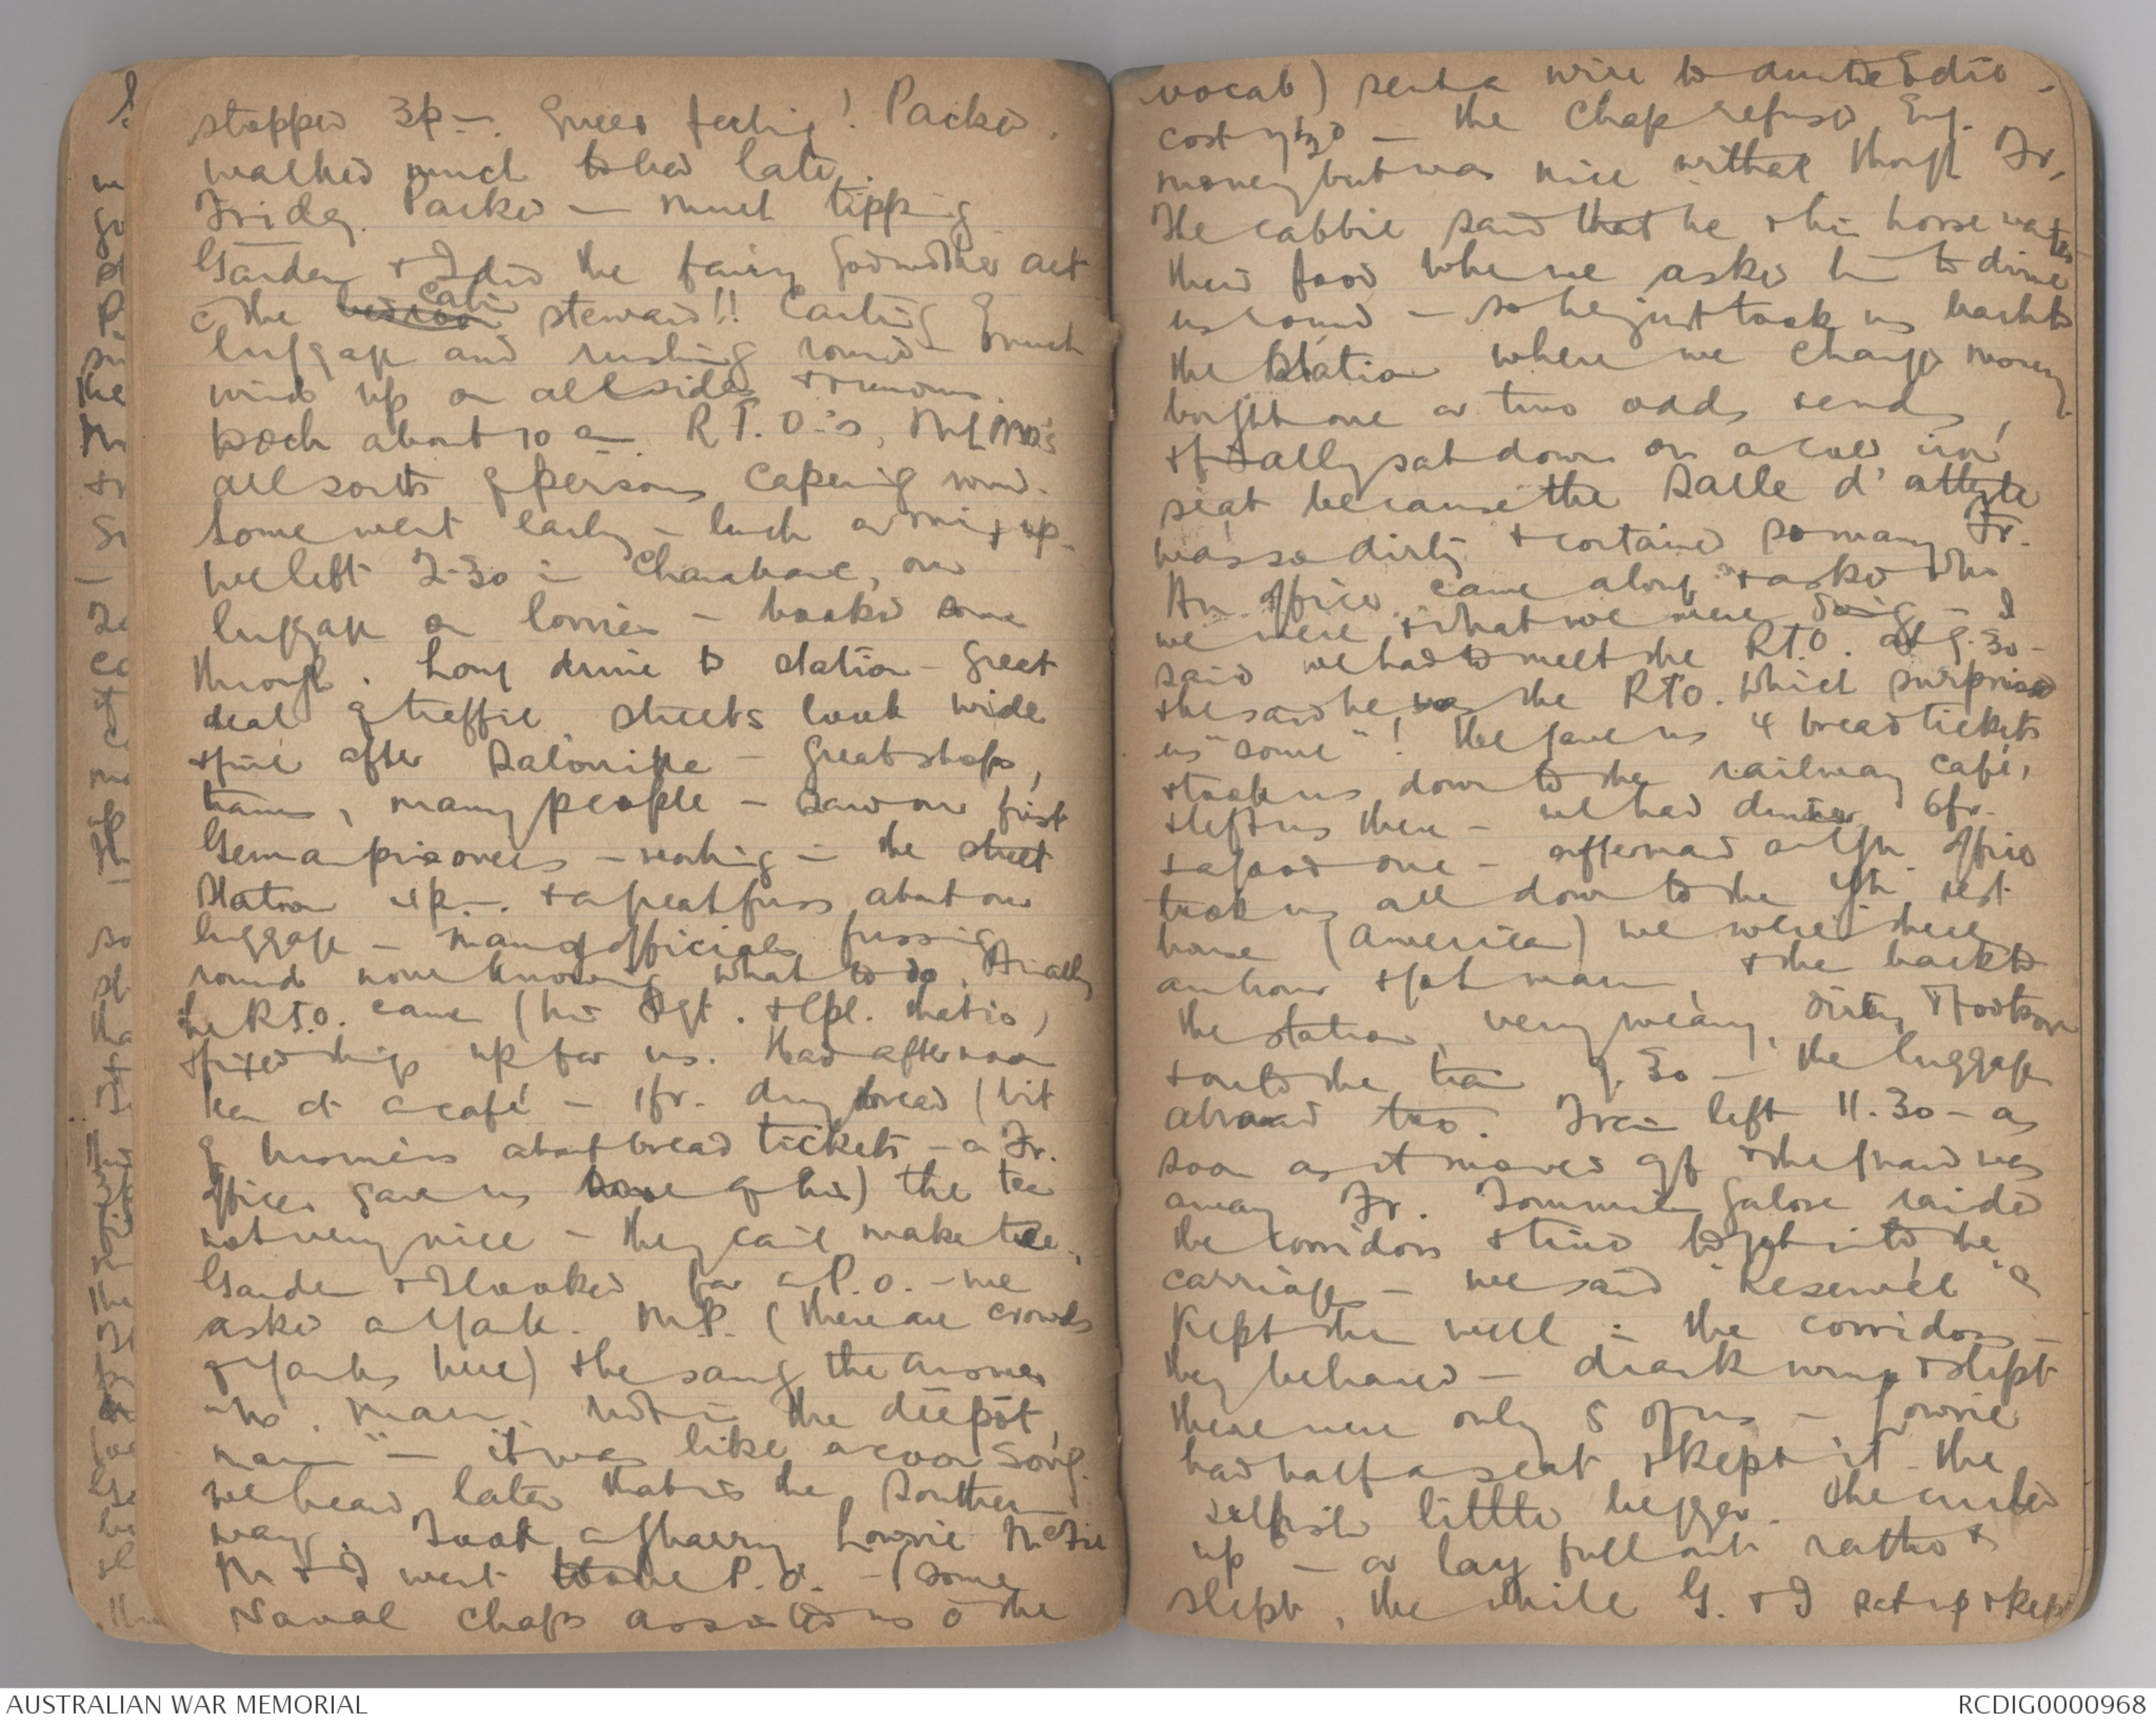 stopped 3 p.m. Queer feeling! Packed,
walked much to bed late.
Friday. Packed — much tipping
Garden & I did the fairy Godmother act
c the bedroom cabin steward!! Carting
luggage and rushing round — much
wind up on all sides & rumours.
Dock about 10 am R.T.O.'s,
all sorts of persons capering round.
Some went early — lunch a mix up
we left 2.30 in Charabanc, our
luggage on lorries — booked some
through. Long drive to station — great
deal of traffic streets look wide
& fine after Salonika — Great shops,
trams, many people — Saw our first
German prisoners — working in the street
Station 4 p.m. & a great fuss about our
luggage — many officials fussing
round none knowing what to do. Finally
the R.T.O. came (his Sgt. & Cpl. that is)
& fixed things up for us. Had afternoon
tea at a café — 1fr. dry bread (bit
of business about bread tickets — a Fr.
officer gave us some of his) the tea
not very nice — they can't make tea.
Garden & I looked for a P.O. — we
asked a Yank. M.P. (there are crowds
of Yanks here) & he sang the answer
"no, mam, not in the deepôt,
mam" — it was like a coon song.
we heard later that is the Southern
way. Took a gharry Lowrie McFie
M & I went to the P.O. — (some
Naval chaps assisted us c the
vocab) sent a wire to Auntie Edie
cost — the chap refused Eng.
money but was nice withal though Fr,
The cabbie said that he & his horse wanted
their food when we asked him to drive
us round — so he just took us back to
the Station where we changed money
bought one or two odds & ends,
& finally sat down on a cold iron
seat because the Salle d'attente
was so dirty & contained so many Fr.
An officer came along & asked who
we were & what we were doing — I
said we had to meet the R.T.O. at 9.30 —
& he said he was the R.T.O. which surprised
us "some"! He gave us 4 bread tickets
& took us down to the railway café,
& left us there — we had dinner 6fr.
& a good one — afterward a Yfn. officer
took us all down to the Yfn. rest
house (America) we were there
an hour & got warm, & then back to
the station, very weary, dirty & footsore
& onto the train 9.30 — the luggage
aboard too. Train left 11.30 — as
soon as it moved off & the guard was
away Fr. Tommies galore raided
the corridors & tried to get into the
carriage — we said "Reservée" &
kept them well in the corridors —
they behaved — drank wine & slept
there were only 5 of us — Lowrie
had half a seat & kept it the
selfish little beggar. She curled
up — or lay full out rather &
slept, the while G. & I sat up & kept
AUSTRALIAN WAR MEMORIAL
RCDIG0000968